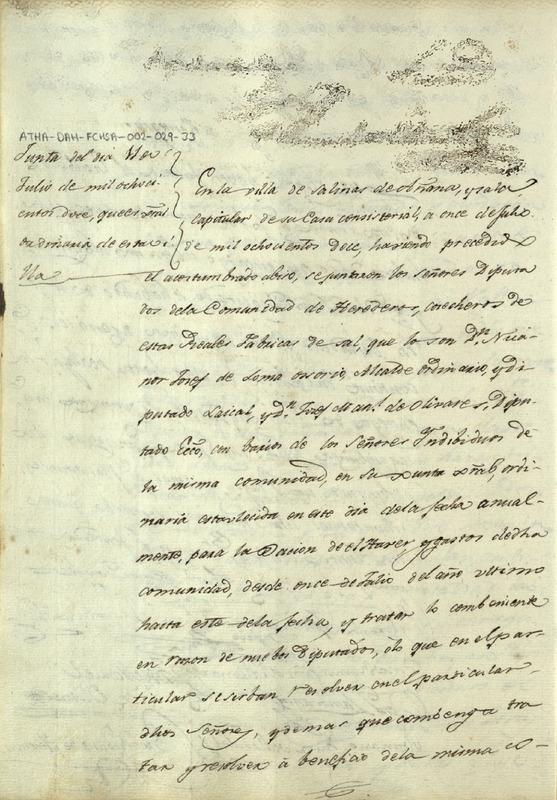 ATHA-DAH-FCHSA-002-029-33
Junta del dia 11 de
Julio de mil ochoci-
entos doce, que es gral
ordinaria de esta vi-
lla
En la villa de Salinas de Añana, y sala
capitular de su Casa consistorial, a once de Julio
de mil ochocientos doce, haviendo precedido
el acostumbrado abiso, se juntaron los señores Diputa
dos dela Comunidad de Herederos, cosecheros de
estas Reales Fabricas de sal, que lo son Dn. Nica-
nor Josef de Loma osorio, Alcalde ordinario, y di-
putado Laical, y Dn. Josef Manl. de Olivares, Dipu-
tado Ecco, con barios de los señores Indibiduos de
la misma comunidad, en su Junta gral, ordi-
naria establecida en este dia dela fecha anual-
mente, para la Dacion de el Haver, y gastos de dha
comunidad, desde once de Julio del año ultimo
hasta este dela fecha, y tratar lo combeniente
en razon de nuebos Diputados, o lo que en el par-
ticular se sirban resolver en el particular
dhos Señores, y demas que combenga tra
tar y resolver a beneficio dela misma co-